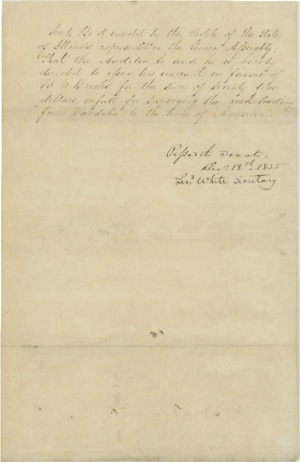 Sec 1. Be it enacted by the People of the State
of Illinois represented in the General Assembly,
That the Auditor be and he is hereby
directed to issue his warrant in favour of
for the sum of seventy two
dollars in full for surveying the road leading
from Vandalia to the town of America.
Passed the Senate,
Decr 18th 1835
Leod White Secretary